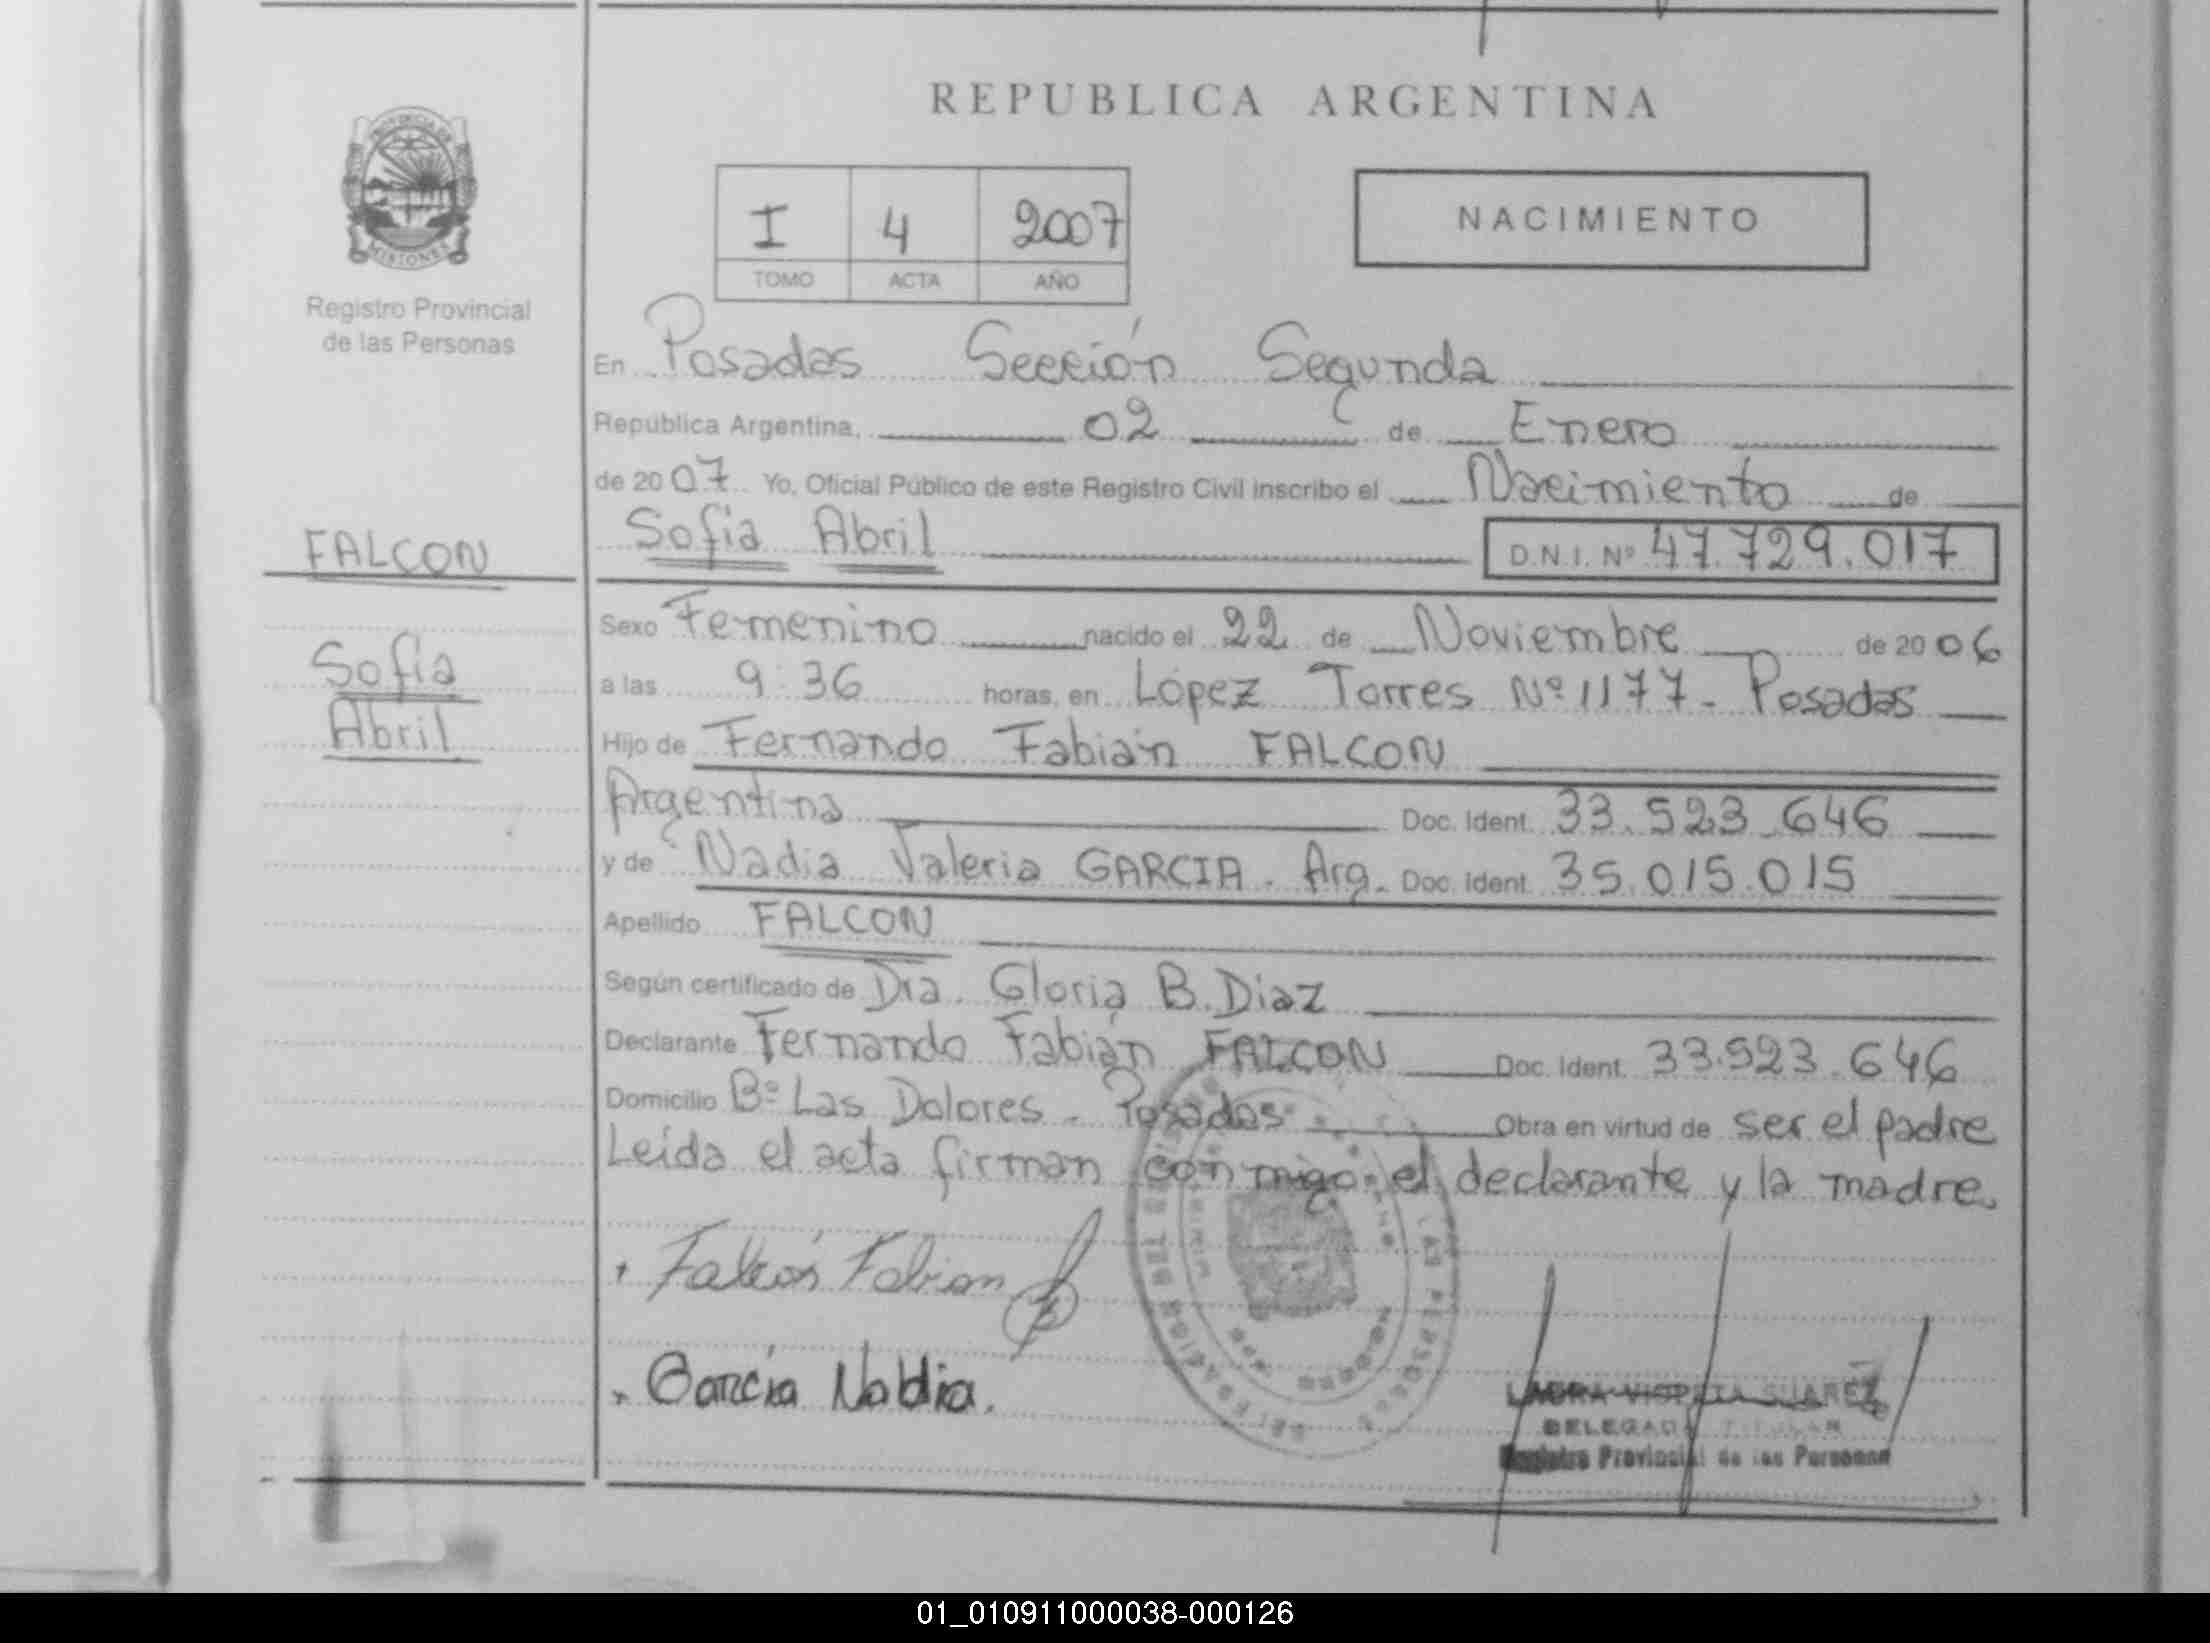 REPUBLICA ARGENTINA
PROVINCIA DE
MISIONES
Registro Provincial
de las Personas
I 4 2007
TOMO ACTA AÑO
NACIMIENTO
En Posadas Sección Segunda
República Argentina, 02 de Enero
de 2007 Yo, Oficial Público de este Registro Civil inscribo el Nacimiento de
FALCON
Sofia Abril D.N.I. Nº 47.729.017
Sexo Femenino nacido el 22 de Noviembre de 2006
Sofia
a las 9:36 horas, en López Torres Nº 1177 - Posadas
Abril
Hijo de Fernando Fabián FALCON
Argentina Doc. Ident. 33.523.646
y de Nadia Valeria GARCIA. Arg. Doc. Ident. 35.015.015
Apellido FALCON
Según certificado de Dra. Gloria B. Diaz
Declarante Fernando Fabián FALCON Doc. Ident. 33.523.646
Domicilio Bº Las Dolores - Posadas Obra en virtud de ser el padre
Leida el acta firman con migo el declarante y la madre
Falcón Fabian
García Nadia.
SUAREZ
DELEGADA TITULAR
Registro Provincial de las Personas
01_010911000038-000126